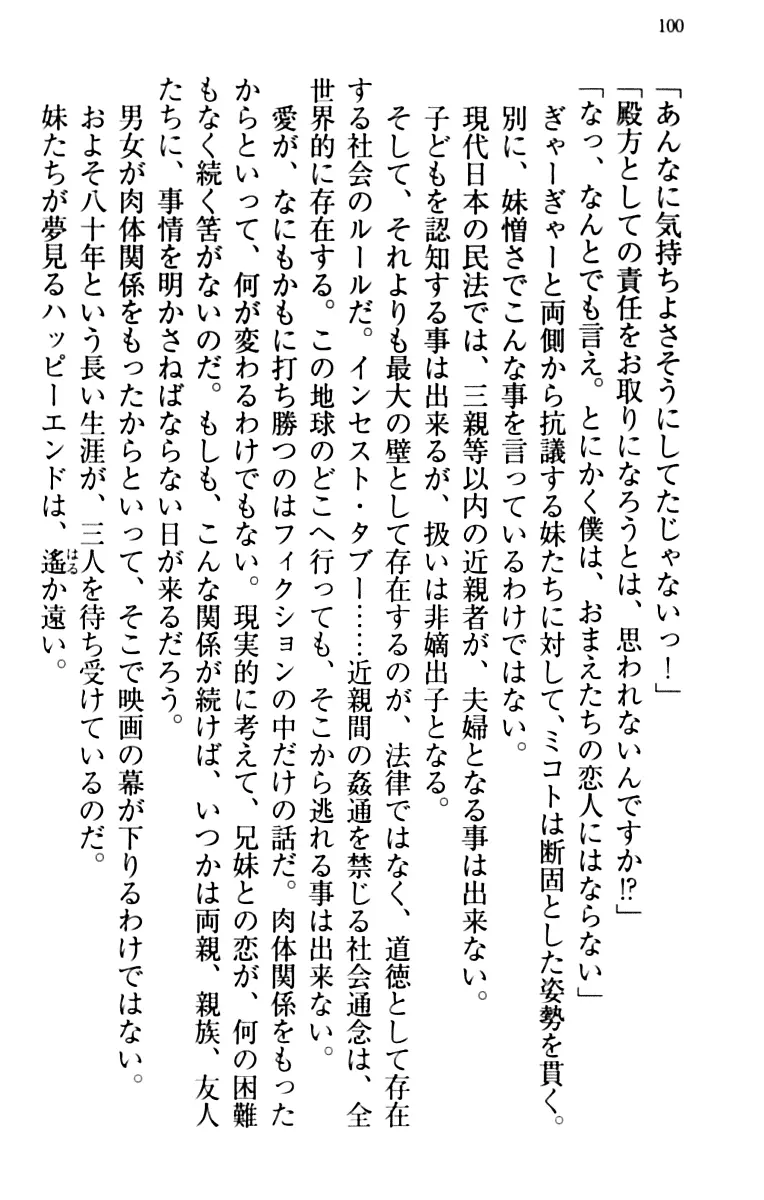 100
「あんなに気持ちよさそうにしてたじゃないっ！」
「殿方としての責任をお取りになろうとは、思われないんですか!?」
「なっ、なんとでも言え。とにかく僕は、おまえたちの恋人にはならない」
ぎゃーぎゃーと両側から抗議する妹たちに対して、ミコトは断固とした姿勢を貫く。
別に、妹憎さでこんな事を言っているわけではない。
現代日本の民法では、三親等以内の近親者が、夫婦となる事は出来ない。
子どもを認知する事は出来るが、扱いは非嫡出子となる。
そして、それよりも最大の壁として存在するのが、法律ではなく、道徳として存在
する社会のルールだ。インセスト・タブー……近親間の姦通を禁じる社会通念は、全
世界的に存在する。この地球のどこへ行っても、そこから逃れる事は出来ない。
愛が、なにもかもに打ち勝つのはフィクションの中だけの話だ。肉体関係をもった
からといって、何が変わるわけでもない。現実的に考えて、兄妹との恋が、何の困難
もなく続く筈がないのだ。もしも、こんな関係が続けば、いつかは両親、親族、友人
たちに、事情を明かさねばならない日が来るだろう。
男女が肉体関係をもったからといって、そこで映画の幕が下りるわけではない。
およそ八十年という長い生涯が、三人を待ち受けているのだ。
妹たちが夢見るハッピーエンドは、遙か遠い。
はる